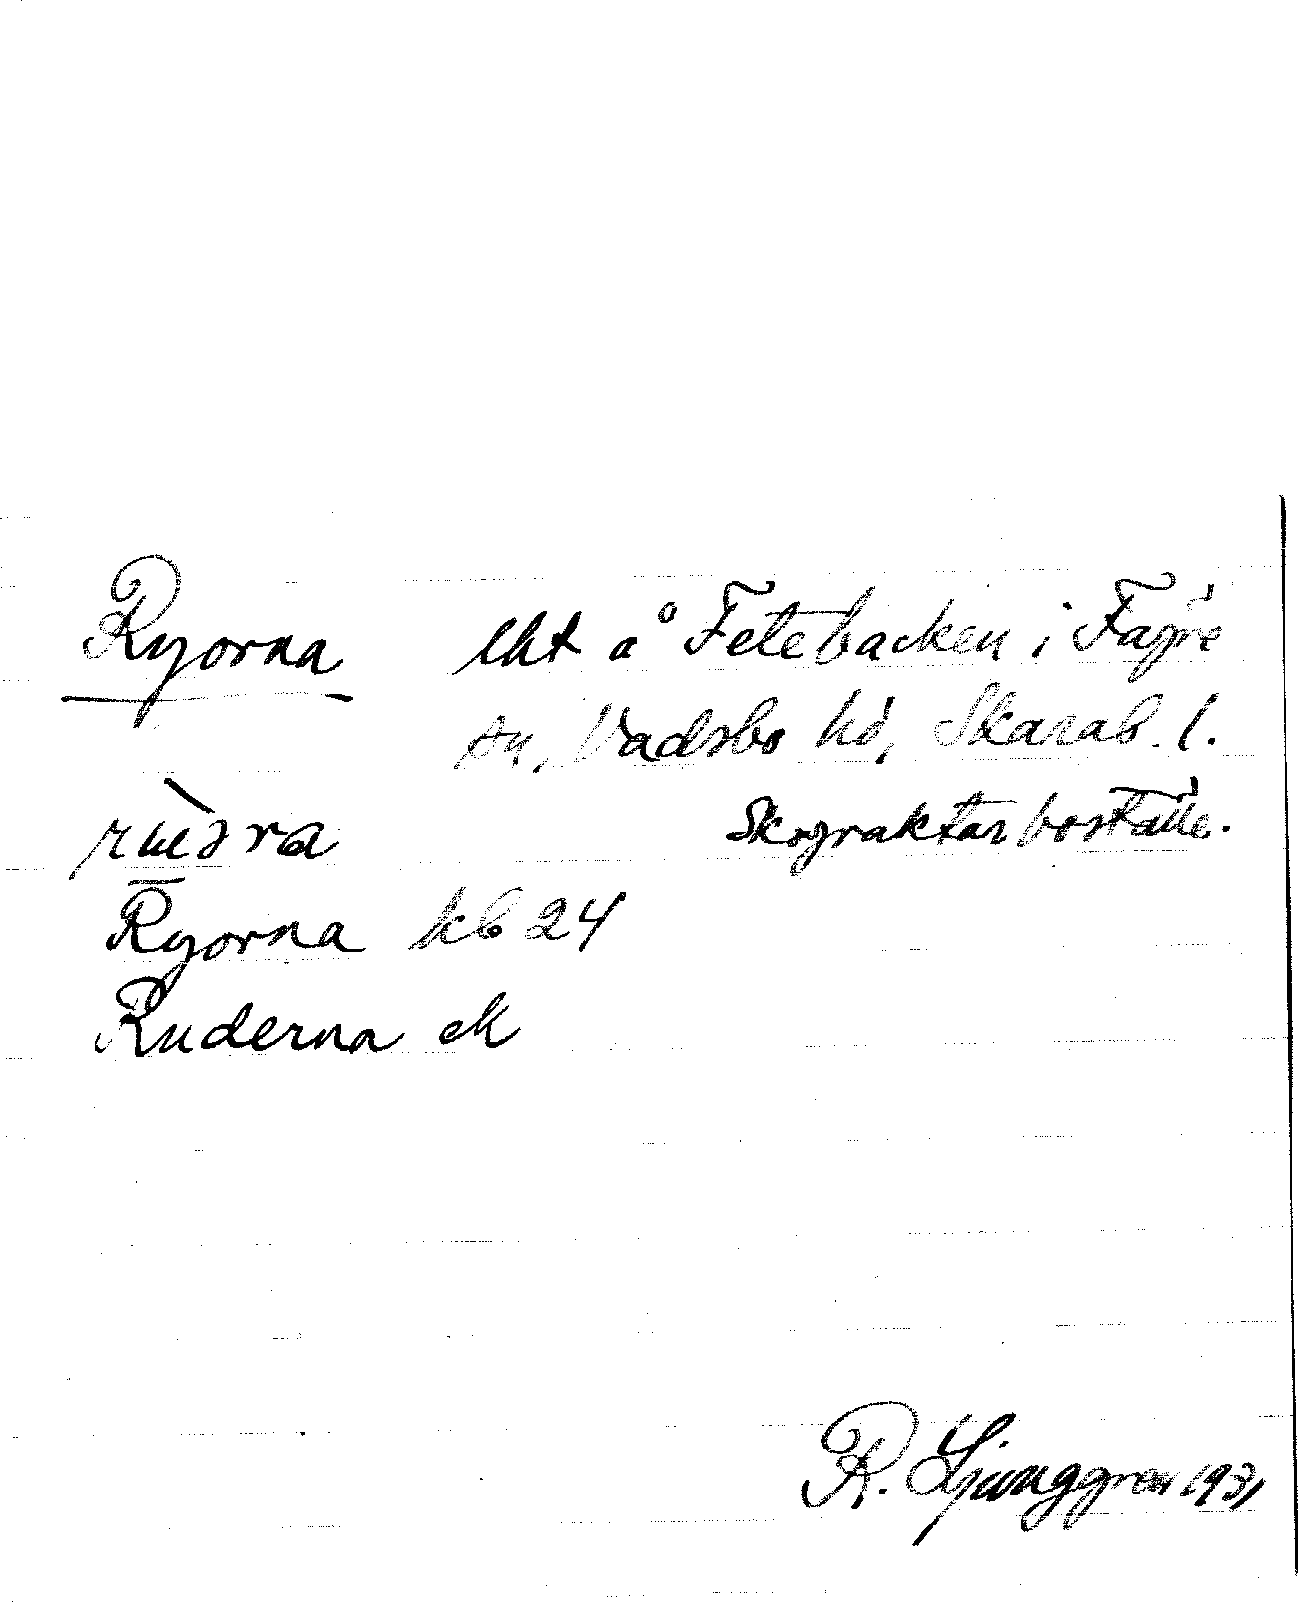 Ryorna lht å Fetebacken i Fägre
sn, Vadsbo hd, Skarab. l.
Skogvaktarboställe.
Ryorna kb 24
Ruderna ek
R. Ljunggren 1931